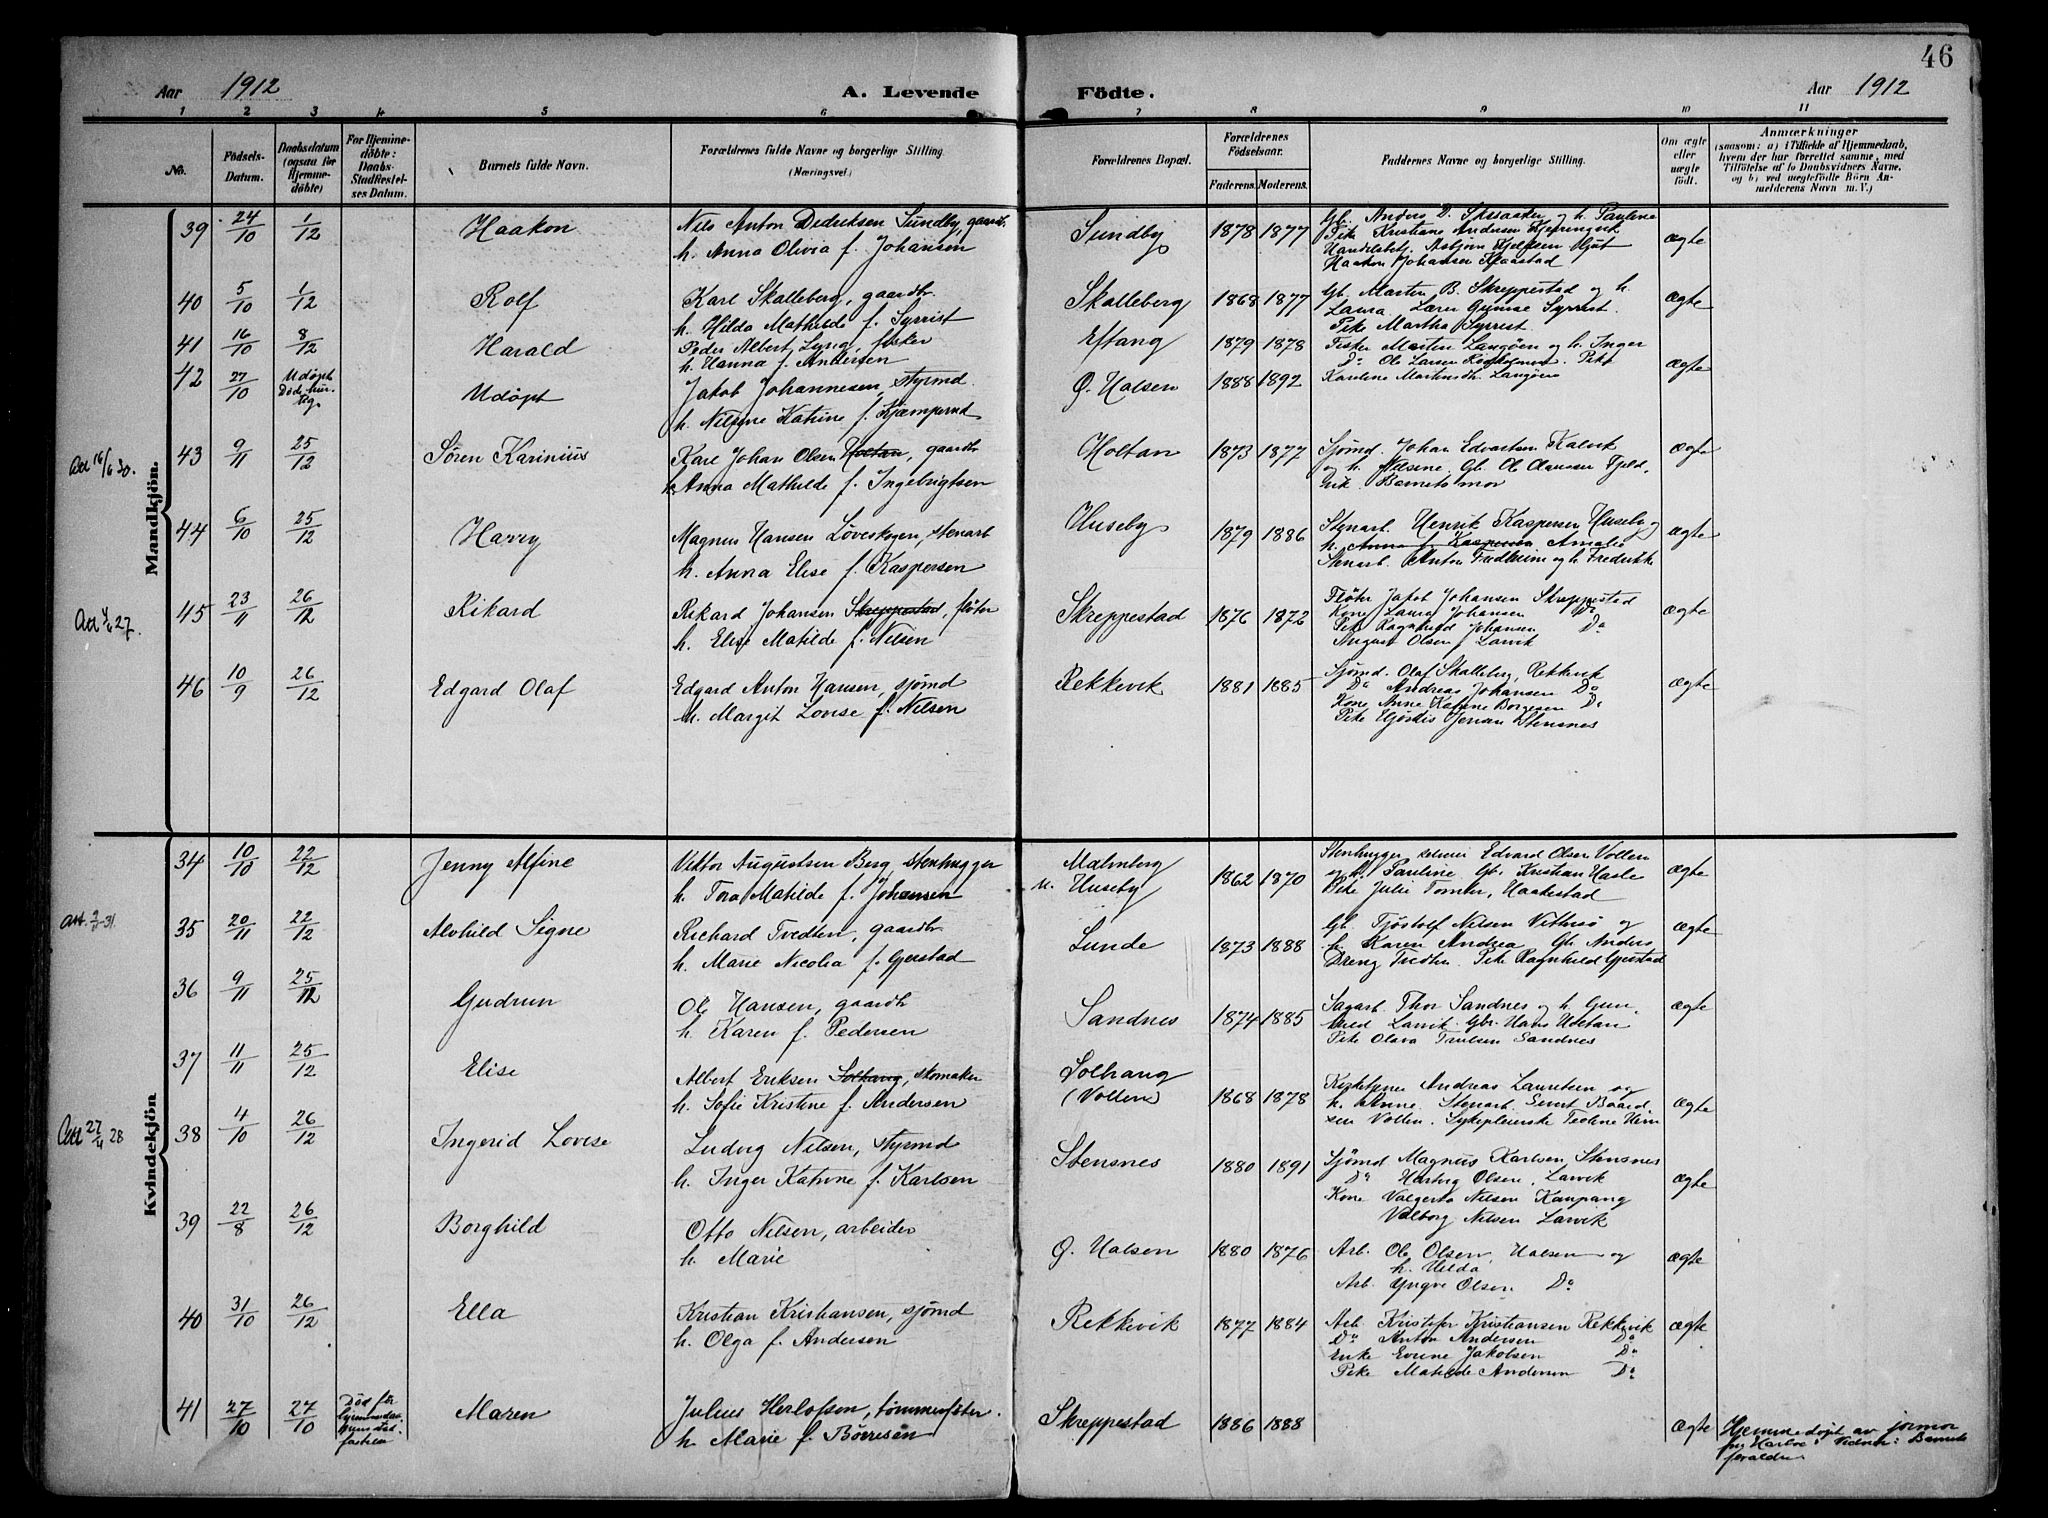 46
Aar 1912 A. Levende Födte. Aar 1912
1 2 3 4 5 6 7 8 9 10 11
No. Födsels-Datum. Daabsdatum (ogsaa for Hjemmedöbte) For Hjemmedöbte: Daabs-Stadfæstelses Datum. Barnets fulde Navn. Forældrenes fulde Navne og borgerlige Stilling. (Næringsvei.) Forældrenes Bopæl. Forældrenes Födselsaar. Faderens. Moderens. Faddernes Navne og borgerlige Stilling. Om ægte eller uægte födt. Anmærkninger (saasom: a) i Tilfælde af Hjemmedaab, hvem der har forrettet samme, med Tilföielse af to Daabsvidners Navne, og b) ved uægtefödte Börn Anmelderens Navn m. V.)
Mandkjön.
39 24/10 1/12 Haakon Nils Anton Didriksen Sundby, gaardb. Sundby 1878 1877 Gb. Anders D. og h. Pauline ægte
h. Anna Olivia f. Johansen Pike Kristiane Andersen
Handelsbetj. Asbjørn
Haakon Johansen Kaastad
40 5/10 1/12 Rolf Karl Skalleberg, gaardbr. Skalleberg 1868 1877 Gb. Martin B. Skreppestad og h. ægte
h. Hilda Mathilde f. Syrrist Laura Lærer Syrrist.
Pike Martha Syrrist.
41 16/10 8/12 Harald Peder Albert Lyng, fisker Eftang 1879 1878 Fisker Martin Langøen og h. Inger
h. Hanna f. Andersen Do Ole Larsen Pike
42 27/10 Udøpt Død hurtig. Udøpt Jakob Johannesen, styrmd. Ø. Halsen 1888 1892 Karoline Langøen ægte
h. Nilsine Katrine f. Kjæmperud
Att 16/6 30. 43 9/11 25/12 Søren Karinius Karl Johan Olsen Holtan, gaardbr Holtan 1873 1877 Sjømd. Johan Edvartsen Kalvik ægte
h. Anna Mathilde f. Ingebrigtsen og h. Nilsine. Gb. Ole Olaussen
Barnets mor
44 6/10 25/12 Harry Magnus Hansen Løveskogen, stenarb Huseby 1879 1886 Stenarb. Henrik Kaspersen Huseby og ægte
h. Anna Elise f. Kaspersen h. Anna f. Kaspersen Amalie
Stenarb. Anton Fredheim og h. Fredrikke
45 23/11 26/12 Rikard Rikard Johansen Skreppestad, fløter Skreppestad 1876 1872 Fløter Jakob Johansen Skreppestad ægte
h. Elise Matilde f. Nilsen Kone Laura Johansen Do
Pike Ragnhild Johansen Do
August Olsen Larvik
46 10/9 26/12 Edgard Olaf Edgard Anton Hansen, sjømd Rekkevik 1881 1885 Sjømd. Olaf Skalleberg, Rekkevik ægte
h. Margit Lovise f. Nilsen Do Andreas Johansen Do
Kone Anne Katrine Borgesen Do
Pike Hjørdis Jensen Stensnes
Kvindekjön
34 10/10 22/12 Jenny Alfine Viktor Augustsen Berg, stenhugger Malmberg 1862 1870 Stenhugger Edvard Olsen Vollen ægte
h. Tora Matilde f. Johansen u. Huseby og h. Pauline Gb. Kristian Hasle
Pike Julie Haakestad
35 20/11 22/12 Alvhild Signe Richard Tvedten, gaardbr. Lunde 1873 1888 Gb. Tjøstolf Nilsen og ægte
h. Marie Nicolia f. Gjerstad h. Karen Andrea Gb Anders
Dreng Tvedten. Pike Ragnhild Gjerstad
36 9/11 25/12 Gudrun Ole Hansen, gaardb Sandnes 1874 1885 Sagarb. Thor Sandnes og h. Gun- ægte
h. Karen f. Pedersen hild Larvik. Gbr. Hans
Pike Olava Paulsen Sandnes
37 11/11 25/12 Elise Albert Eriksen Solhaug, skomaker Solhaug 1868 1878 Andreas Lauritsen og ægte
h. Sofie Kristine f. Andersen (Vollen) h. Anne. Stenarb. Baard
sen Vollen. Sykepleierske
Att 27/4 28 38 4/10 26/12 Ingerid Lovise Ludvig Nilsen, styrmd Stensnes 1880 1891 Sjømd Magnus Karlsen Stensnes ægte
h. Inger Katrine f. Karlsen Do Hartvig Olsen. Larvik
Kone Valgerta Nilsen Kaupang
Valborg Nilsen Larvik
39 22/8 26/12 Borghild Otto Nilsen, arbeider Ø. Halsen 1880 1876 Arb. Ole Olsen, Halsen og ægte
h. Marie h. Hilda
Arb. Yngve Olsen Do
40 31/10 26/12 Ella Kristian Kristiansen, sjømd Rekkevik 1877 1884 Arb Kristofer Kristiansen Rekkevik ægte
h. Olga f. Andersen Do Anton Andersen Do
Enke Evine Jakobsen Do
Pike Matilde Andersen Do
41 27/10 27/10 Død før Maren Julius Herlofsen, tømmerfløter. Skreppestad 1886 1888 ægte Hjemmedøpt av jormor
h. Marie f. Børresen